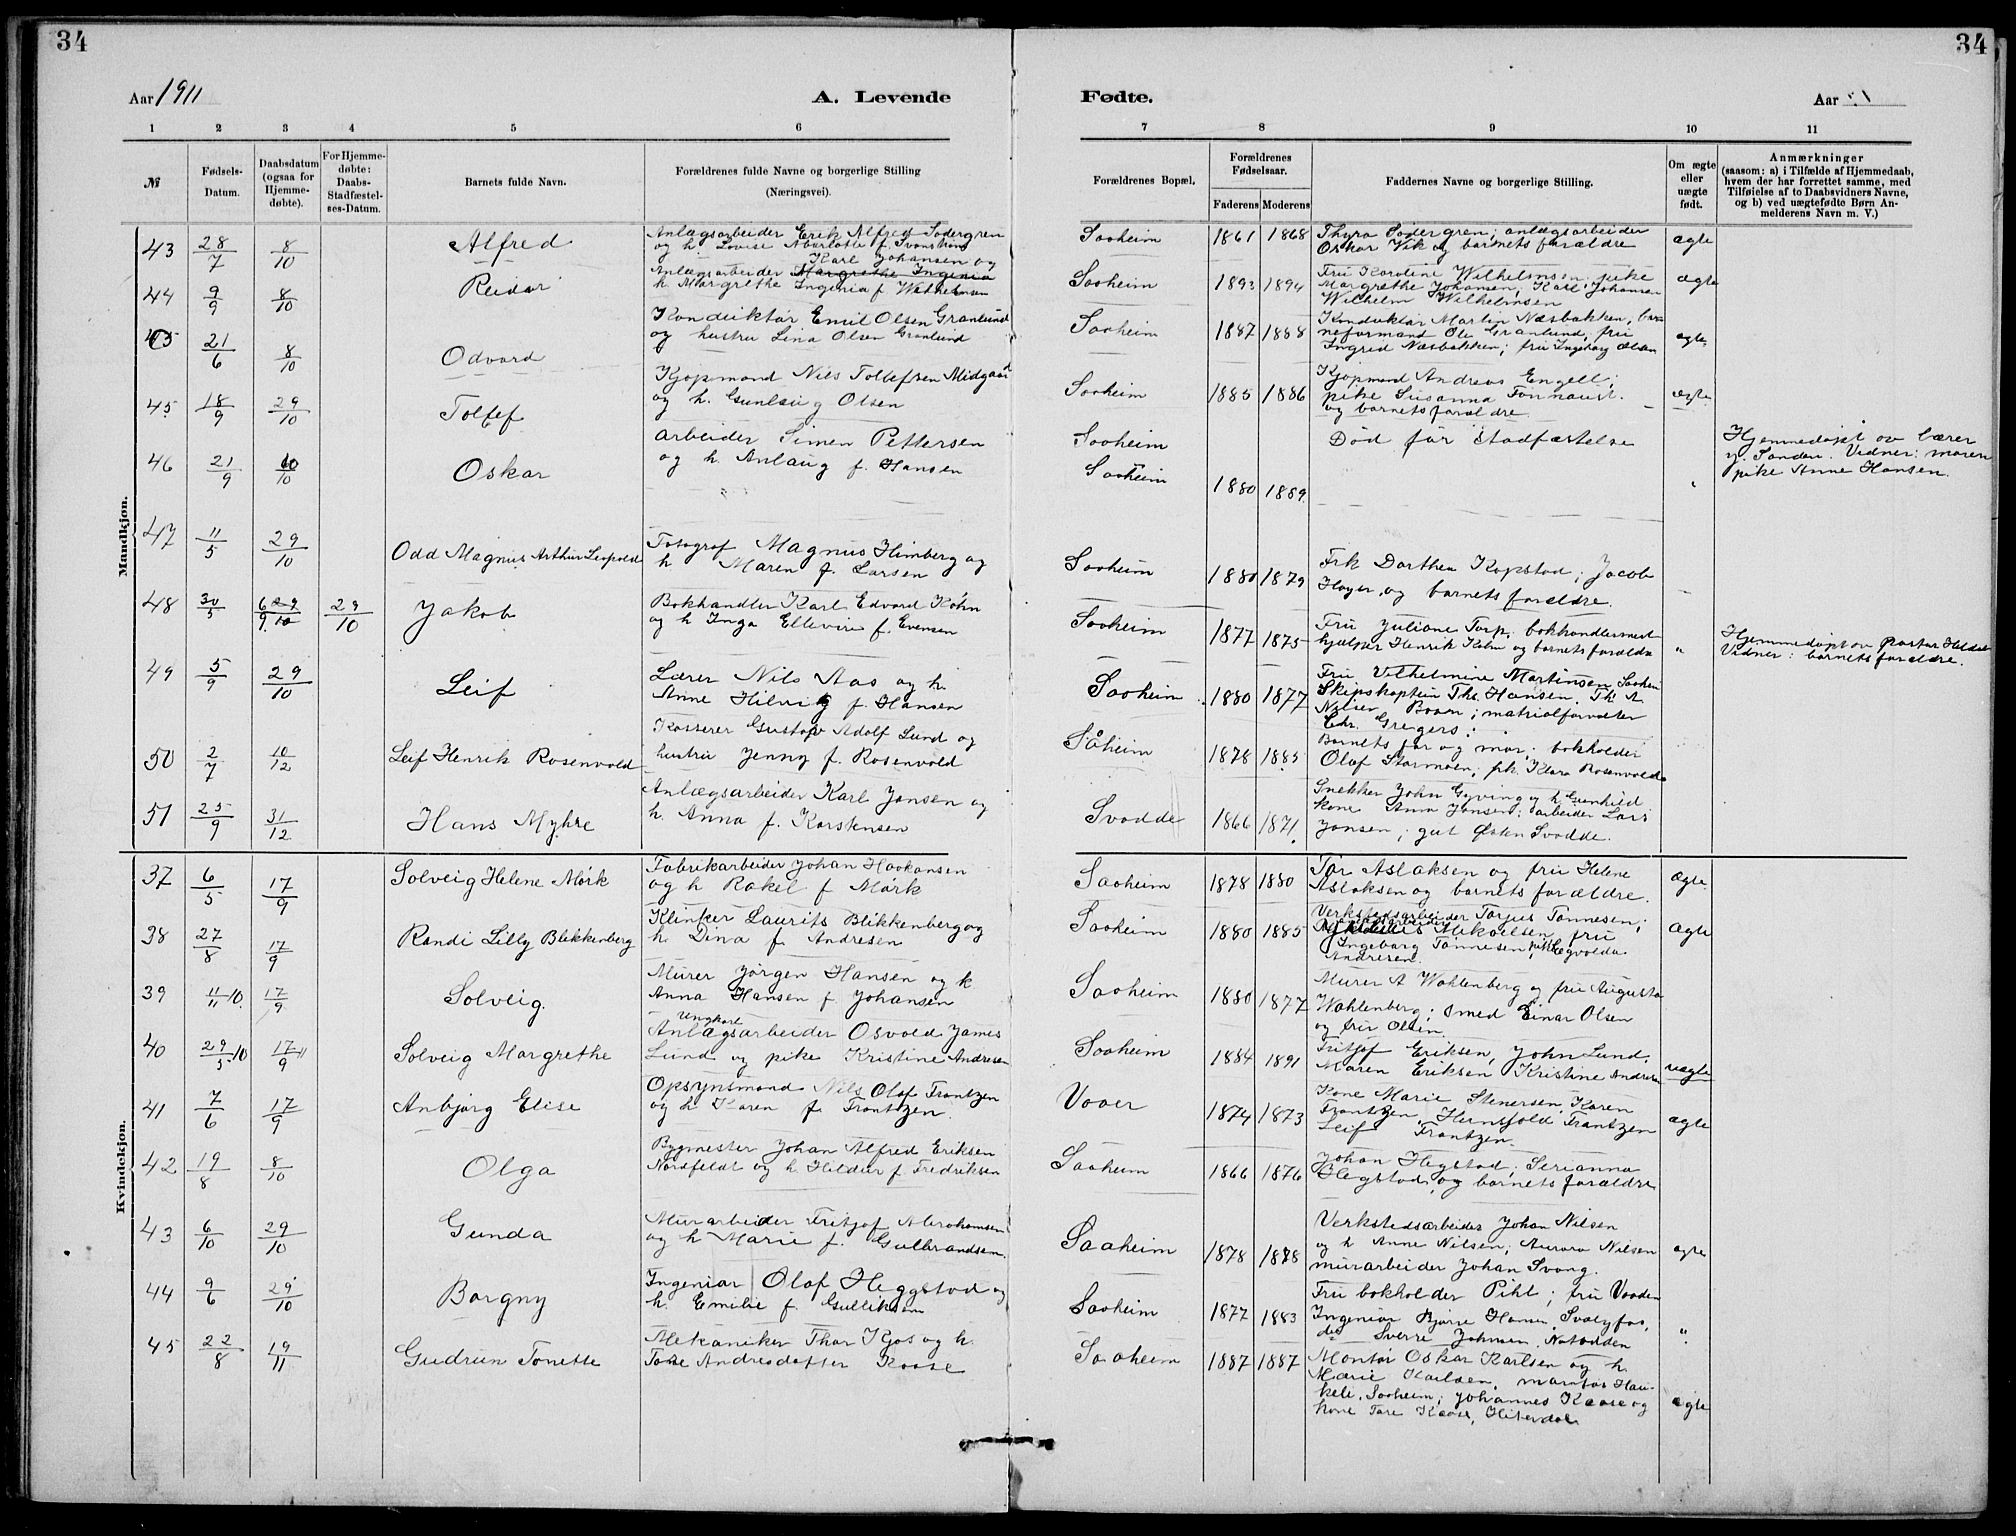 34
34
Aar 1911
A. Levende
Fødte.
Aar
1 2 3 4 5 6
7 8 9 10 11
№
Fødsels-Datum.
Daabsdatum (ogsaa for Hjemme-døbte).
For Hjemme-døbte: Daabs-Stadfæstel-ses-Datum.
Barnets fulde Navn.
Forældrenes fulde Navne og borgerlige Stilling
(Næringsvei).
Forældrenes Bopæl.
Forældrenes Fødselsaar.
Faderens Moderens
Faddernes Navne og borgerlige Stilling.
Om ægte eller uægte født.
Anmærkninger
(saasom: a) i Tilfælde af Hjemmedaab,
hvem der har forrettet samme, med
Tilføielse af to Daabsvidners Navne,
og b) ved uægtefødte Børn An-
melderens Navn m. V.)
Mandkjøn.
43 28/7 8/10 Alfred
Anlægsarbeider Erik Alfred Södergren
og h. Lovise
Saaheim 1861 1868
Thyra Södergren; anlægsarbeider
Oskar Vik og barnets forældre
ægte
44 9/9 8/10 Reidar
Karl Johansen og
Anlægsarbeider Margrethe Ingenia
h. Margrethe Ingenia f. Wilhelmsen
Saaheim 1893 1894
Fru Karoline Wilhelmsen pike
Margrethe Johansen, Karl Johansen
Wilhelm Wilhelmsen
ægte
45 21/6 8/10 Odvard
Konduktør Emil Olsen Granlund
og hustru Lina Olsen Granlund
Saaheim 1887 1888
Konduktør Martin Næsbakken,
neformand Ole Granlund, fru
Ingrid Næsbakken; fru Ingeborg Olsen
ægte
45 18/9 29/10 Tollef
Kjøpmand Nils Tollefsen Midgaard
og h. Gunlaug Olsen
Saaheim 1885 1886
Kjøpmand Andreas Engell;
pike Susanna
og barnets forældre
ægte
46 21/9 10/10 Oskar
Arbeider Simen Pettersen
og h. Anlaug f. Hansen
Saaheim
Saaheim 1880 1889
Død før stadfæstelse
Hjemmedøpt av lærer
Y. Sandau. Vidner: moren
pike Anne Hansen.
47 11/5 29/10 Odd Magnus Arthur Leopold
Fotograf Magnus Himberg og
h. Maren f. Larsen
Saaheim 1880 1879
Frk Dorthea Kopstad; Jacob
Høyer, og barnets forældre.
48 30/5 6/9 29/10 29/10 Jakob
Bokhandler Karl Edvard Køhn
og h Inga Ellevine f. Evensen
Saaheim 1877 1875
Fru Juliane Torp, bokhandlermed-
hjælper Henrik Køhn og barnets forældre
"
Hjemmedøpt av Pastor Heldal
Vidner: barnets forældre.
49 5/9 29/10 Leif
Lærer Nils Aas og h.
Anne Hilvig f. Hansen
Saaheim 1880 1877
Fru Vilhelmine Martinsen
Skipskaptein Ths. Hansen. Th. A.
Nilsen Boon; matrialforvalter
Chr. Gregers;
50 2/7 10/12 Leif Henrik Rosenvold
Kasserer Gustav Adolf Lund og
hustru Jenny f. Rosenvold
Såheim 1878 1885
Barnets far og mor; bokholder
Olaf Stormoen, pk. Klara Rosenvold
51 25/9 31/12 Hans Myhre
Anlægsarbeider Karl Jansen og
h. Anna f. Karstensen
Svadde 1866 1871
Snekker John Gyving og h. Gunhild
kone Anna Jansen; arbeider Lars
Jansen; gut Østen Svadde.
Kvindekjøn.
37 6/5 17/9 Solveig Helene Mørk
Fabrikarbeider Johan Haakansen
og h Rakel f Mørk
Saaheim 1878 1880
Tor Aslaksen og fru Helene
Aslaksen og barnets forældre.
ægte
38 27/8 17/9 Randi Lilly Blikkenberg
Klinker Laurits Blikkenberg og
h. Dina f. Andresen
Saaheim 1880 1885
Verkstedsarbeider Torjus Tønnesen;
Mikaelsen, fru
Ingeborg Tønnesen, pike
Andresen.
ægte
39 11/11 10. 17/9 Solveig.
Murer Jørgen Hansen og h
Anna Hansen f. Johansen
Saaheim 1880 1877
Murer A Wahlenberg og fru Augusta
Wahlenberg; smed Einar Olsen
og fru Olsen
40 29/5 10 17/9 11 Solveig Margrethe
Ungkarl
Anlægsarbeider Osvald James
Lund og pike Kristine Andresen
Saaheim 1884 1891
Fritjof Eriksen, John Lund.
Maren Eriksen Kristine Andresen
uægte
41 7/6 17/9 Anbjørg Elise
Opsynsmand Nils Olaf Frantzen
og h Karen f. Frantzen.
Vaaer 1874 1873
Kone Marie Stenersen, Karen
Frantzen, Hernfold Frantzen
Leif Frantzen.
ægte
42 19/8 8/10 Olga
Bygmester Johan Alfred Eriksen
Nordfeldt og h Hildur f Fredriksen
Saaheim 1866 1876
Johan Hegstad; Serianna
Hegstad, og barnets forældre
43 6/10 29/10 Gunda
Murarbeider Fritjof Abrahamsen
og h Marie f. Gulbrandsen.
Saaheim 1878 1878
Verkstedsarbeider Johan Nilsen
og h Anne Nilsen; Aurora Nilsen
murarbeider Johan Svang.
ægte
44 9/6 29/10 Borgny
Ingeniør Olaf Heggstad og
h. Emilie f. Gulliksen
Saaheim 1877 1883
Fru bokholder Pihl; fru Vaaden
Ingeniør Bjarne Hansen, Svælgfos,
do Sverre Johnsen, Notodden
"
45 22/8 19/11 Gudrun Tonette
Mekaniker Thor Kjos og h.
Tone Andresdatter Kaase
Saaheim 1887 1887
Montør Oskar Karlsen og h.
Marie Karlsen, montør Hau-
keli, Saaheim; Johannes Kaase og
kone Tore Kaase, Hiterdal
ægte